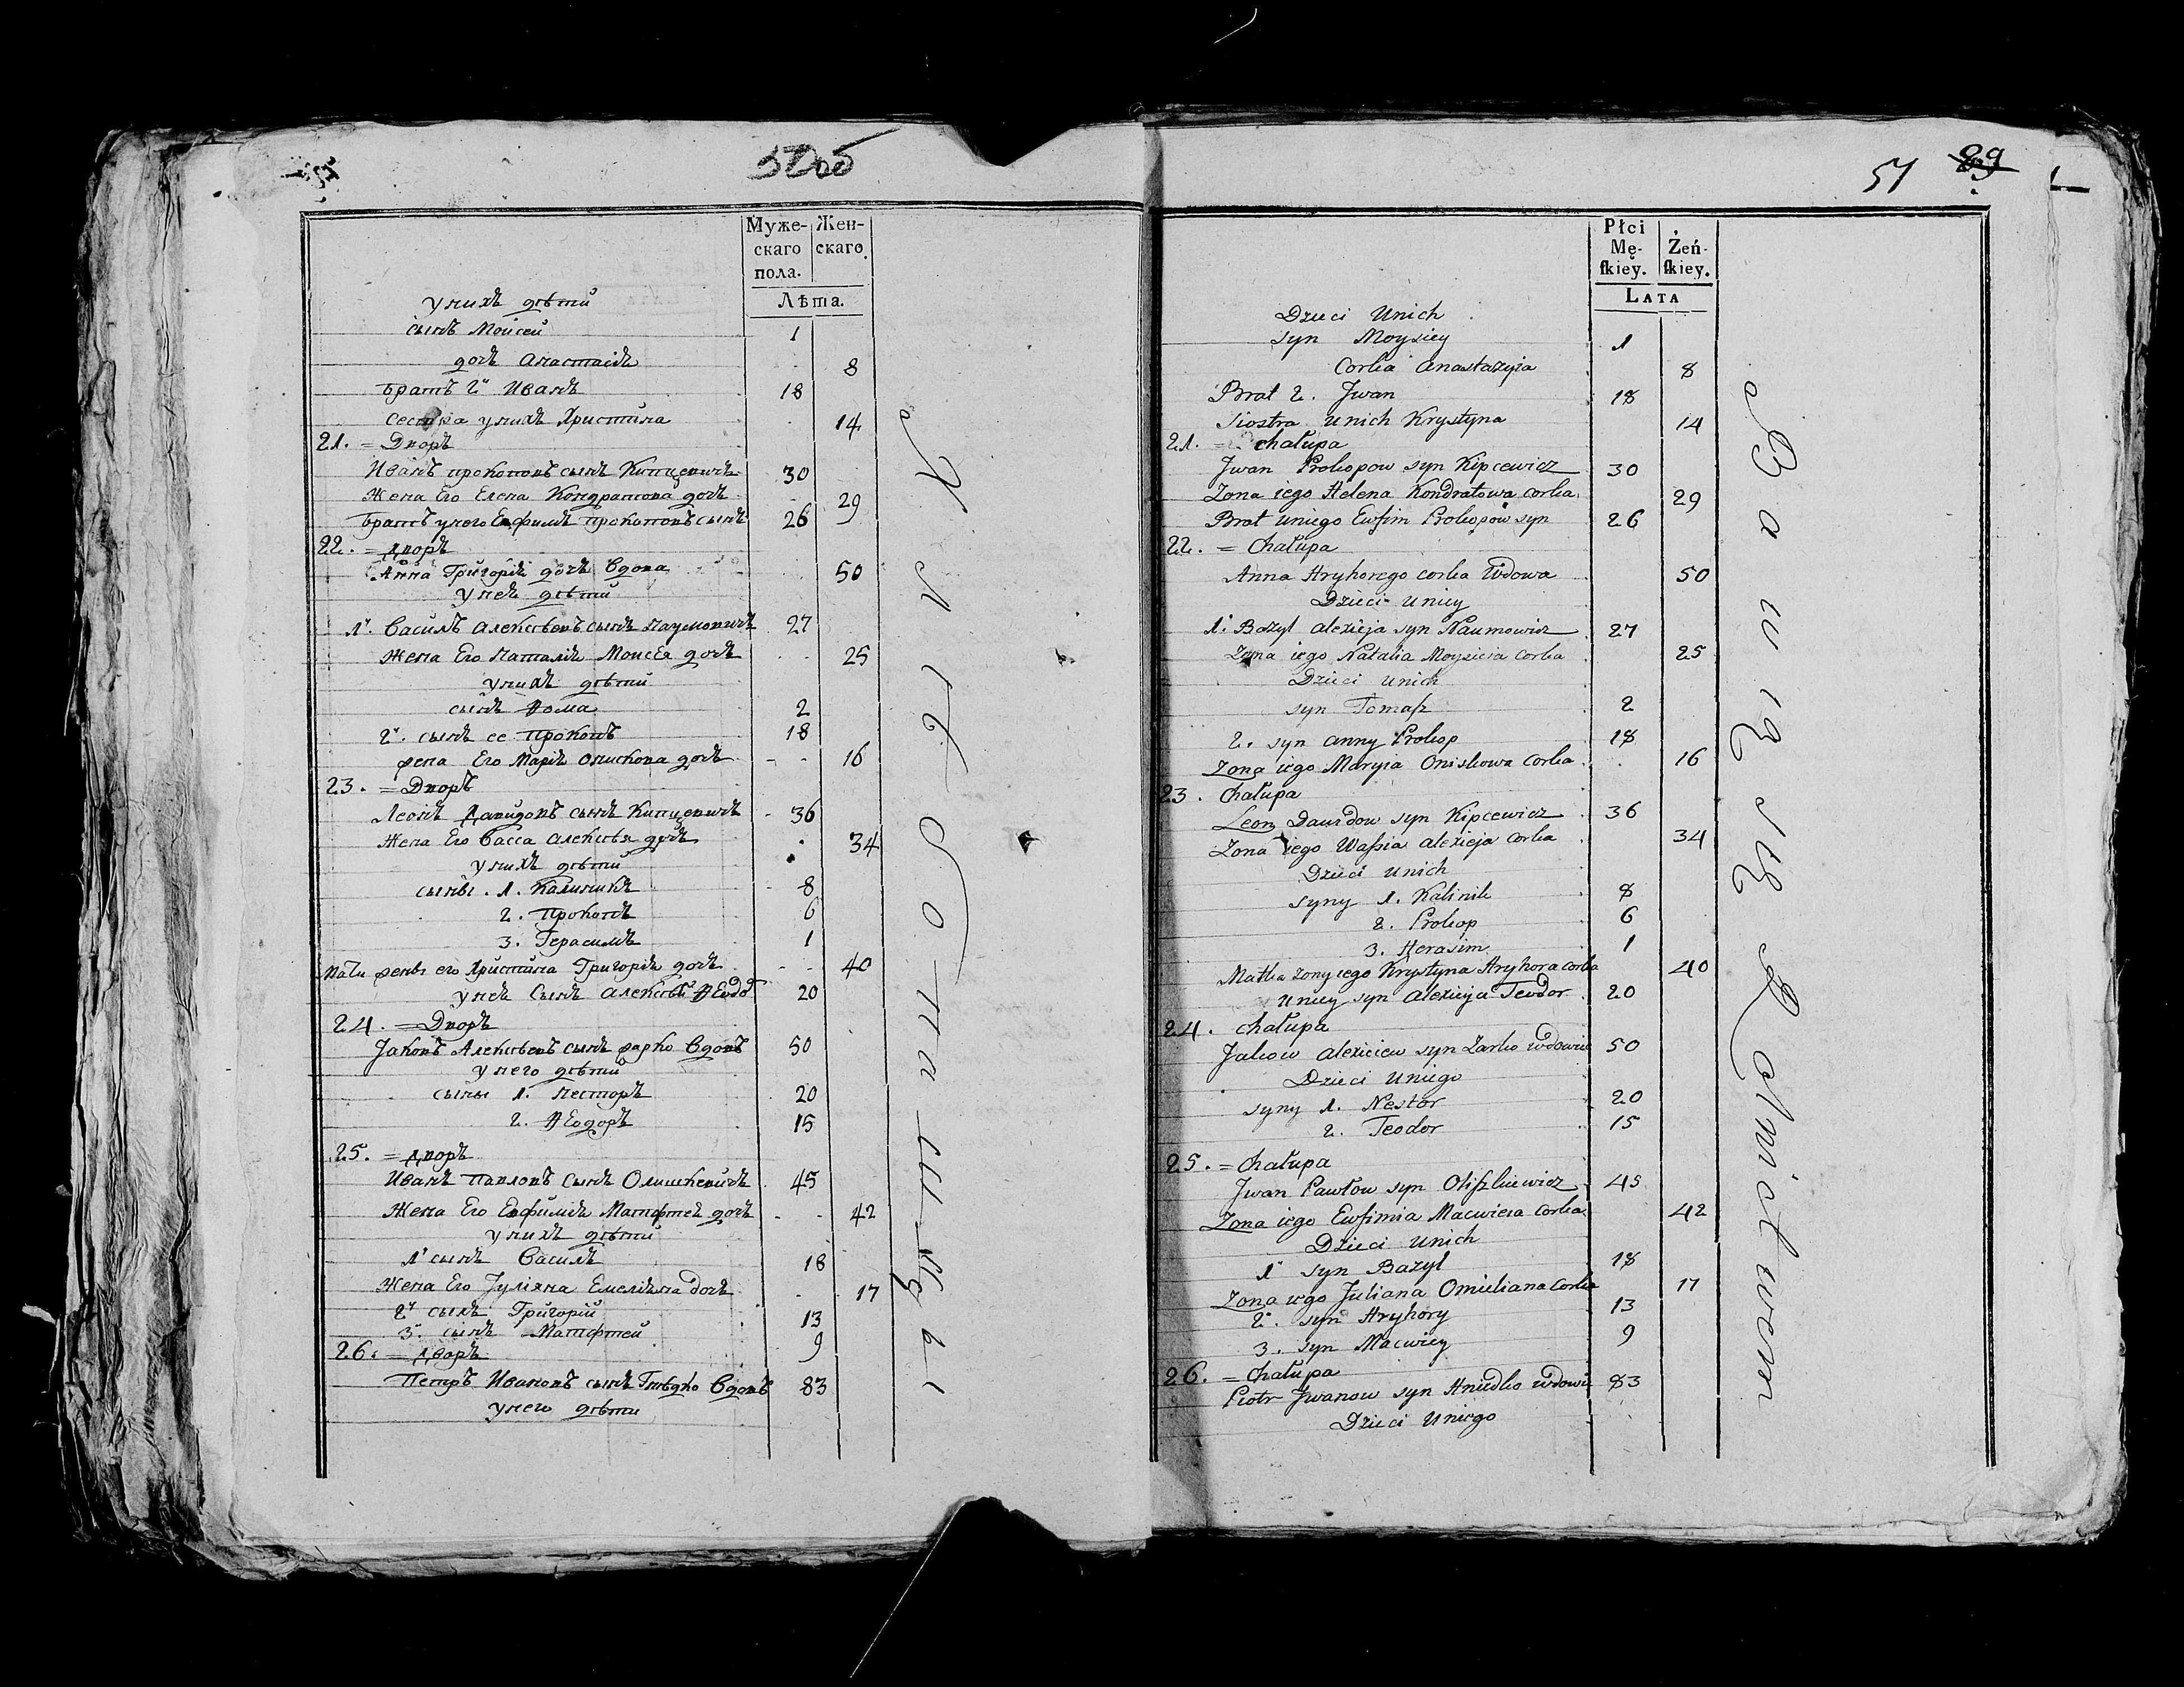 50об
Муже-
скаго
пола.
Жен-
скаго.
Лѣта.
у нихъ дѣти
сынъ Моисей 1
дочь Анастасія 8
братъ 2й Иванъ 18
сестра у нихъ Христина 14
21. = Дворъ
Иванъ Прокоповъ сынъ Кипцевичъ 30
Жена Его Елена Кондратова дочь 29
братъ у него Евфимъ Прокоповъ сынъ 26
22. = Дворъ
Анна Григорія дочь вдова 50
у ней дѣти
1й. Василь Алексѣевъ сынъ Наумовичъ 27
Жена Его Наталія Моисея дочь 25
у нихъ дѣти
сынъ Ѳома 2
2й. сынъ ее Прокопъ 18
жена Его Марія Онискова дочь 16
23. = Дворъ
Леонъ Давидовъ сынъ Кипцевичъ 36
Жена Его Васса Алексѣя дочь 34
у нихъ дѣти
сыны. 1. Калиникъ 8
2. Прокопъ 6
3. Герасимъ 1
Мать жены его Христина Григорія дочь 40
у ней Сынъ Алексѣй Ѳеодо 20
24. = Дворъ
Іаковъ Алексѣевъ сынъ жарко вдовъ 50
у него дѣти
сыны 1. Несторъ 20
2. Ѳеодоръ 15
25. = Дворъ
Иванъ Павловъ Сынъ Олишкевичъ 45
Жена Его Евфимія Матфтея дочь 42
у нихъ дѣти
1й сынъ Василь 18
Жена Его Іуліяна Емеліяна дочь 17
2й сынъ Григорій 13
3й. сынъ Матфтей 9
26. = Дворъ
Петръ Ивановъ сынъ Гнѣдко вдовъ 83
у него дѣти
51 89
Płci
Mę-
ſkiey.
Żeń-
ſkiey.
Lata
Dzieci Unich
syn Moysiey 1
Corka Anastazyia 8
Brat 2. Jwan 18
Siostra unich Krystyna 14
21. = Chałupa
Jwan Prokopow syn Kipcewicz 30
Zona iego Helena Kondratowa corka 29
Brat uniego Ewfim Prokopow syn 26
22. = Chałupa
Anna Hryhorego corka Wdowa 50
Dzieci Uniey
1. Bazyl Alexieja syn Naumowicz 27
Zona iego Natalia Moysieia Corka 25
Dzieci unich
syn Tomaſz 2
2. syn anny Prokop 18
Zona iego Maryia Oniskowa Corka 16
23. Chałupa
Leon Dawidow syn Kipcewicz 36
Zona iego Waſsia Alexieja Corka 34
Dzieci unich
syny 1. Kalinik 8
2. Prokop 6
3. Herasim 1
Matka Zony iego Krystyna Hryhora corka 40
Uniey syn Alexieja Teodor 20
24. Chałupa
Jakow Alexieiew syn Zarko wdowiec 50
Dzieci Uniego
syny 1. Nestor 20
2. Teodor 15
25. = Chałupa
Jwan Pawłow syn Oliſzkiewicz 45
Zona iego Ewfimia Macwieia Corka 42
Dzieci Unich
1. syn Bazyl 18
Zona iego Juliana Omieliana Corka 17
2. syn Hryhory 13
3. syn Macwiey 9
26. = Chałupa
Piotr Jwanow syn Hniedko wdowie 83
Dzieci Uniego